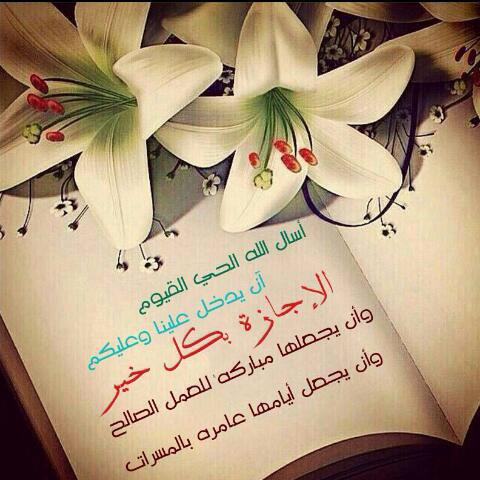 أسال الله الحي القيوم
أن يدخل علينا وعليكم
الإجازة بكل خير
وأن يجعلها مباركه للعمل الصالح
وأن يجعل أيامها عامره بالمسرات